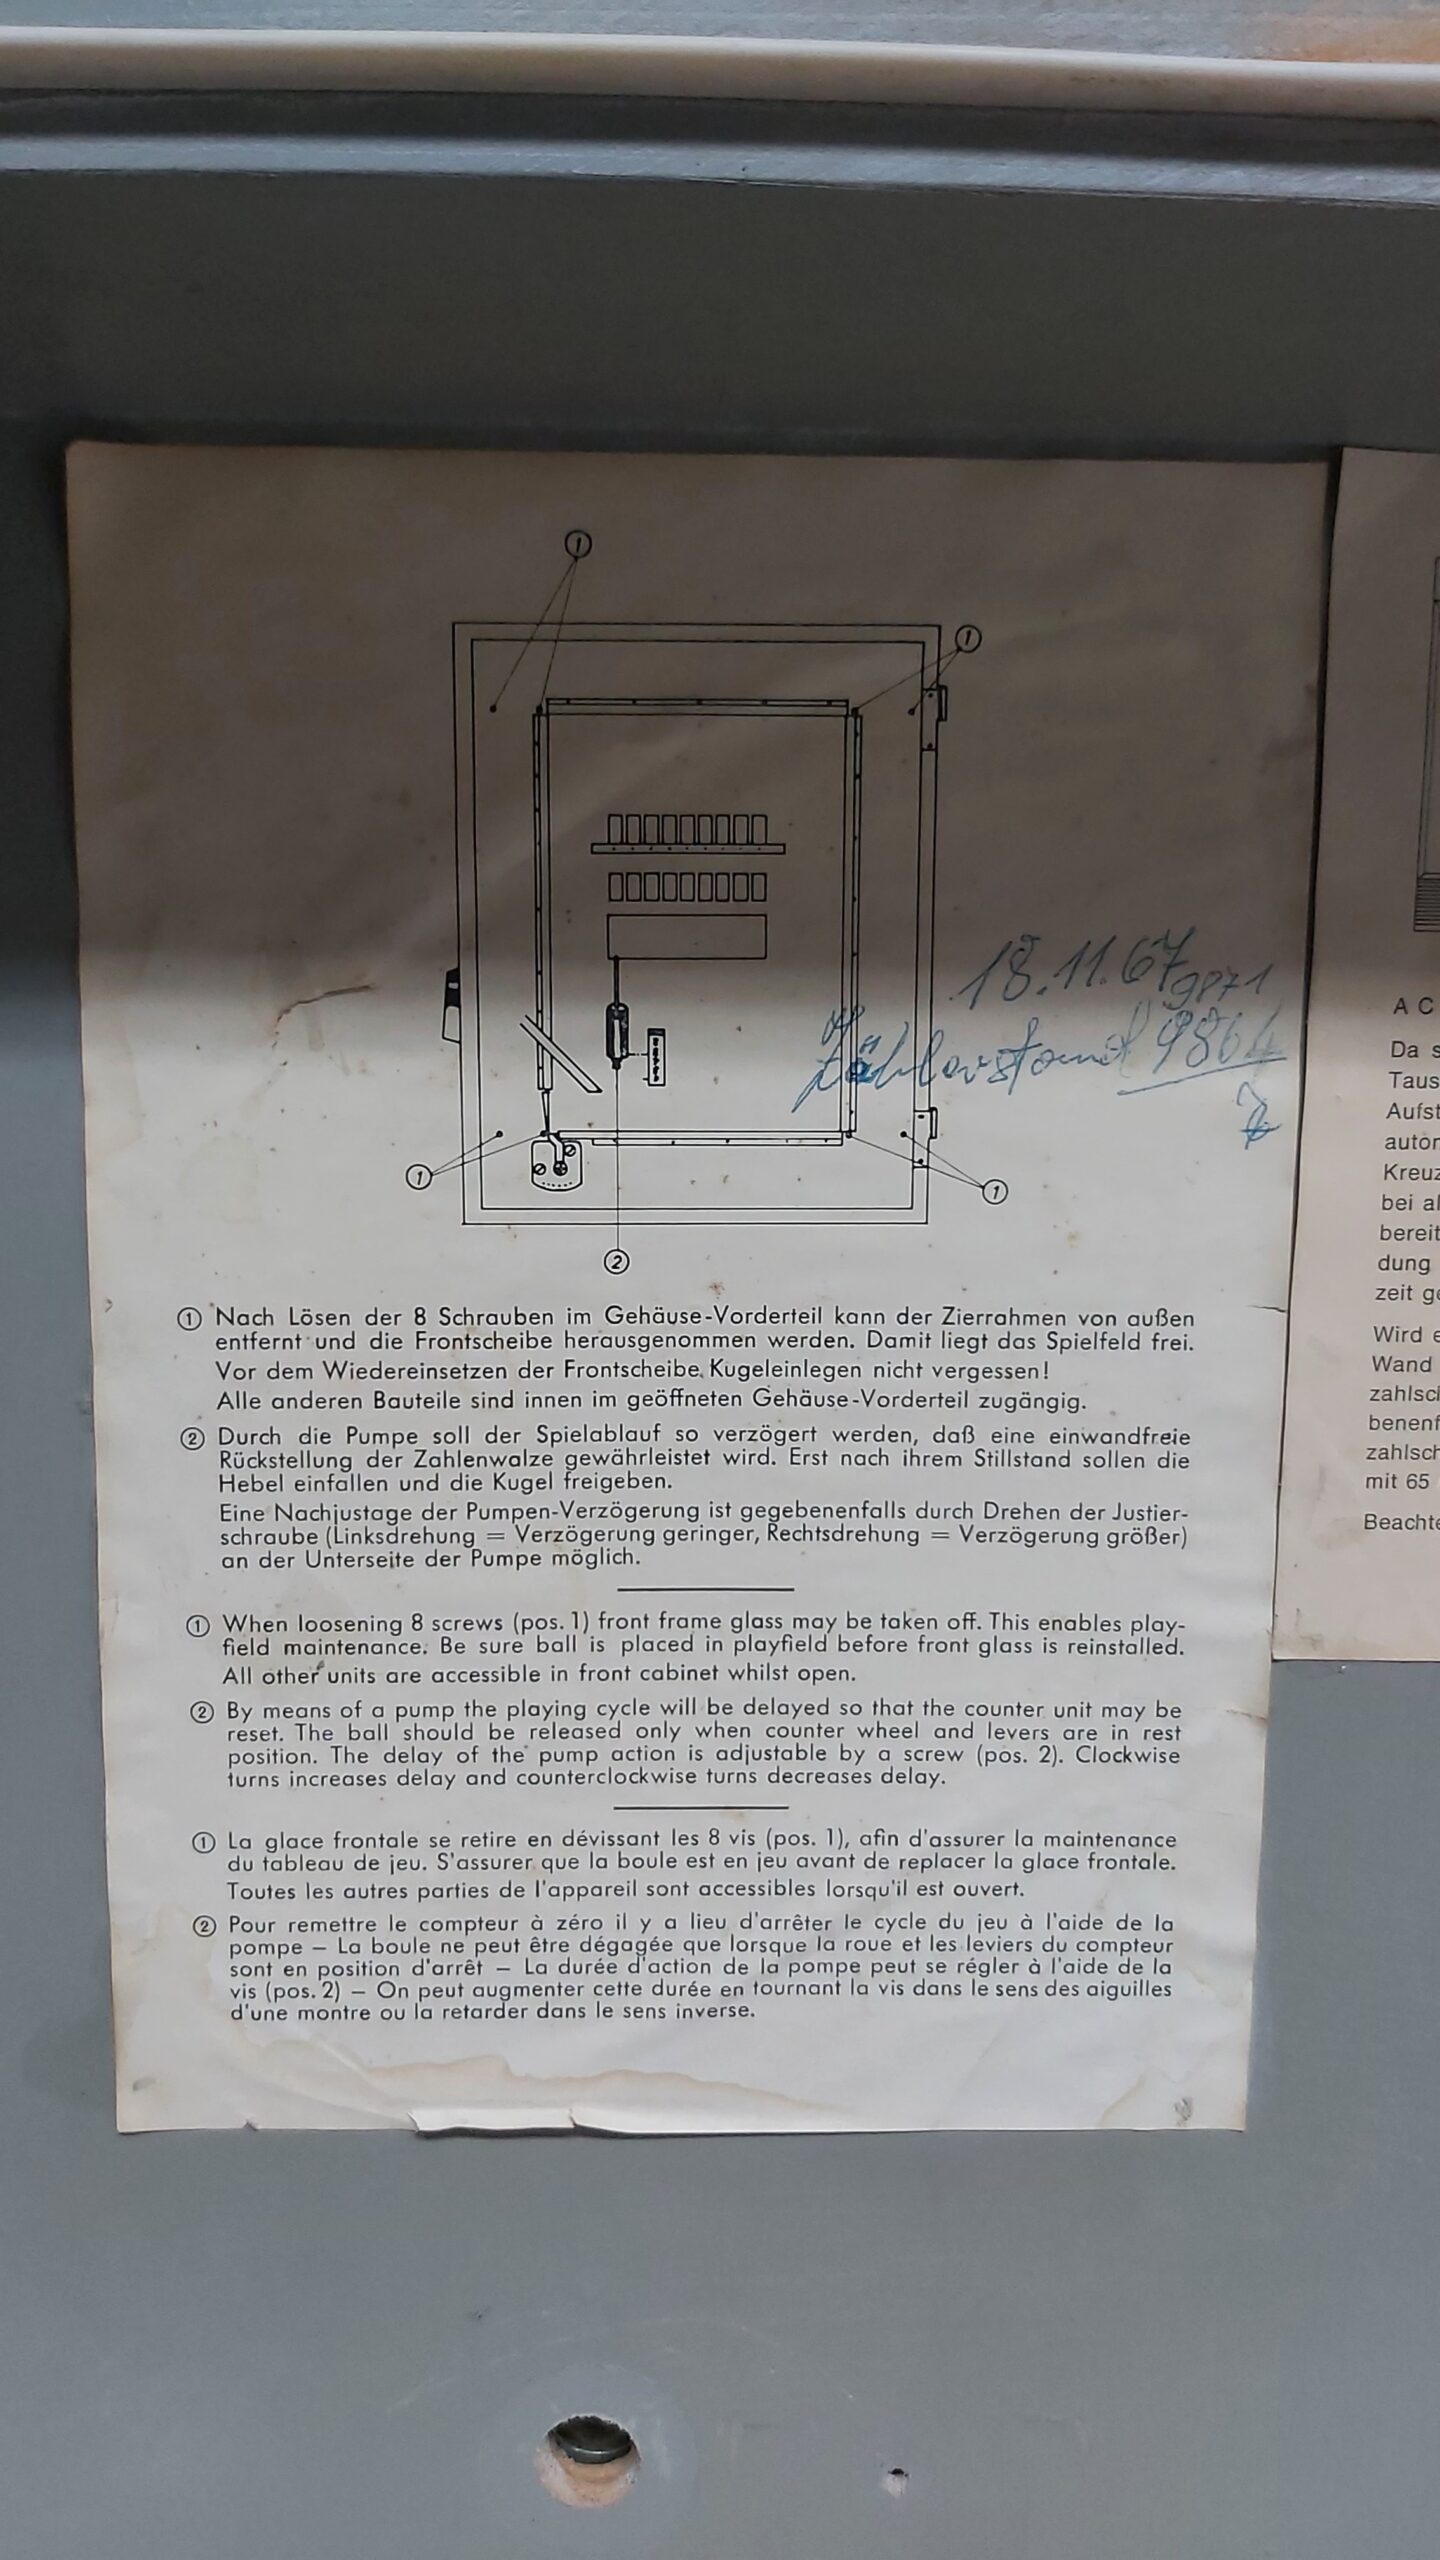 1
1
18.11.67
9871
Zählerstand 9864
1
1
2
1 Nach Lösen der 8 Schrauben im Gehäuse-Vorderteil kann der Zierrahmen von außen
entfernt und die Frontscheibe herausgenommen werden. Damit liegt das Spielfeld frei.
Vor dem Wiedereinsetzen der Frontscheibe Kugeleinlegen nicht vergessen!
Alle anderen Bauteile sind innen im geöffneten Gehäuse-Vorderteil zugängig.
2 Durch die Pumpe soll der Spielablauf so verzögert werden, daß eine einwandfreie
Rückstellung der Zahlenwalze gewährleistet wird. Erst nach ihrem Stillstand sollen die
Hebel einfallen und die Kugel freigeben.
Eine Nachjustage der Pumpen-Verzögerung ist gegebenenfalls durch Drehen der Justier-
schraube (Linksdrehung = Verzögerung geringer, Rechtsdrehung = Verzögerung größer)
an der Unterseite der Pumpe möglich.
1 When loosening 8 screws (pos. 1) front frame glass may be taken off. This enables play-
field maintenance. Be sure ball is placed in playfield before front glass is reinstalled.
All other units are accessible in front cabinet whilst open.
2 By means of a pump the playing cycle will be delayed so that the counter unit may be
reset. The ball should be released only when counter wheel and levers are in rest
position. The delay of the pump action is adjustable by a screw (pos. 2). Clockwise
turns increases delay and counterclockwise turns decreases delay.
1 La glace frontale se retire en dévissant les 8 vis (pos. 1), afin d'assurer la maintenance
du tableau de jeu. S'assurer que la boule est en jeu avant de replacer la glace frontale.
Toutes les autres parties de l'appareil sont accessibles lorsqu'il est ouvert.
2 Pour remettre le compteur à zéro il y a lieu d'arrêter le cycle du jeu à l'aide de la
pompe – La boule ne peut être dégagée que lorsque la roue et les leviers du compteur
sont en position d'arrêt – La durée d'action de la pompe peut se régler à l'aide de la
vis (pos. 2) – On peut augmenter cette durée en tournant la vis dans le sens des aiguilles
d'une montre ou la retarder dans le sens inverse.
A C
Da s
Taus
Aufst
autom
Kreuz
bei al
bereit
dung
zeit ge
Wird e
Wand
zahlsch
benenf
zahlsch
mit 65
Beachte